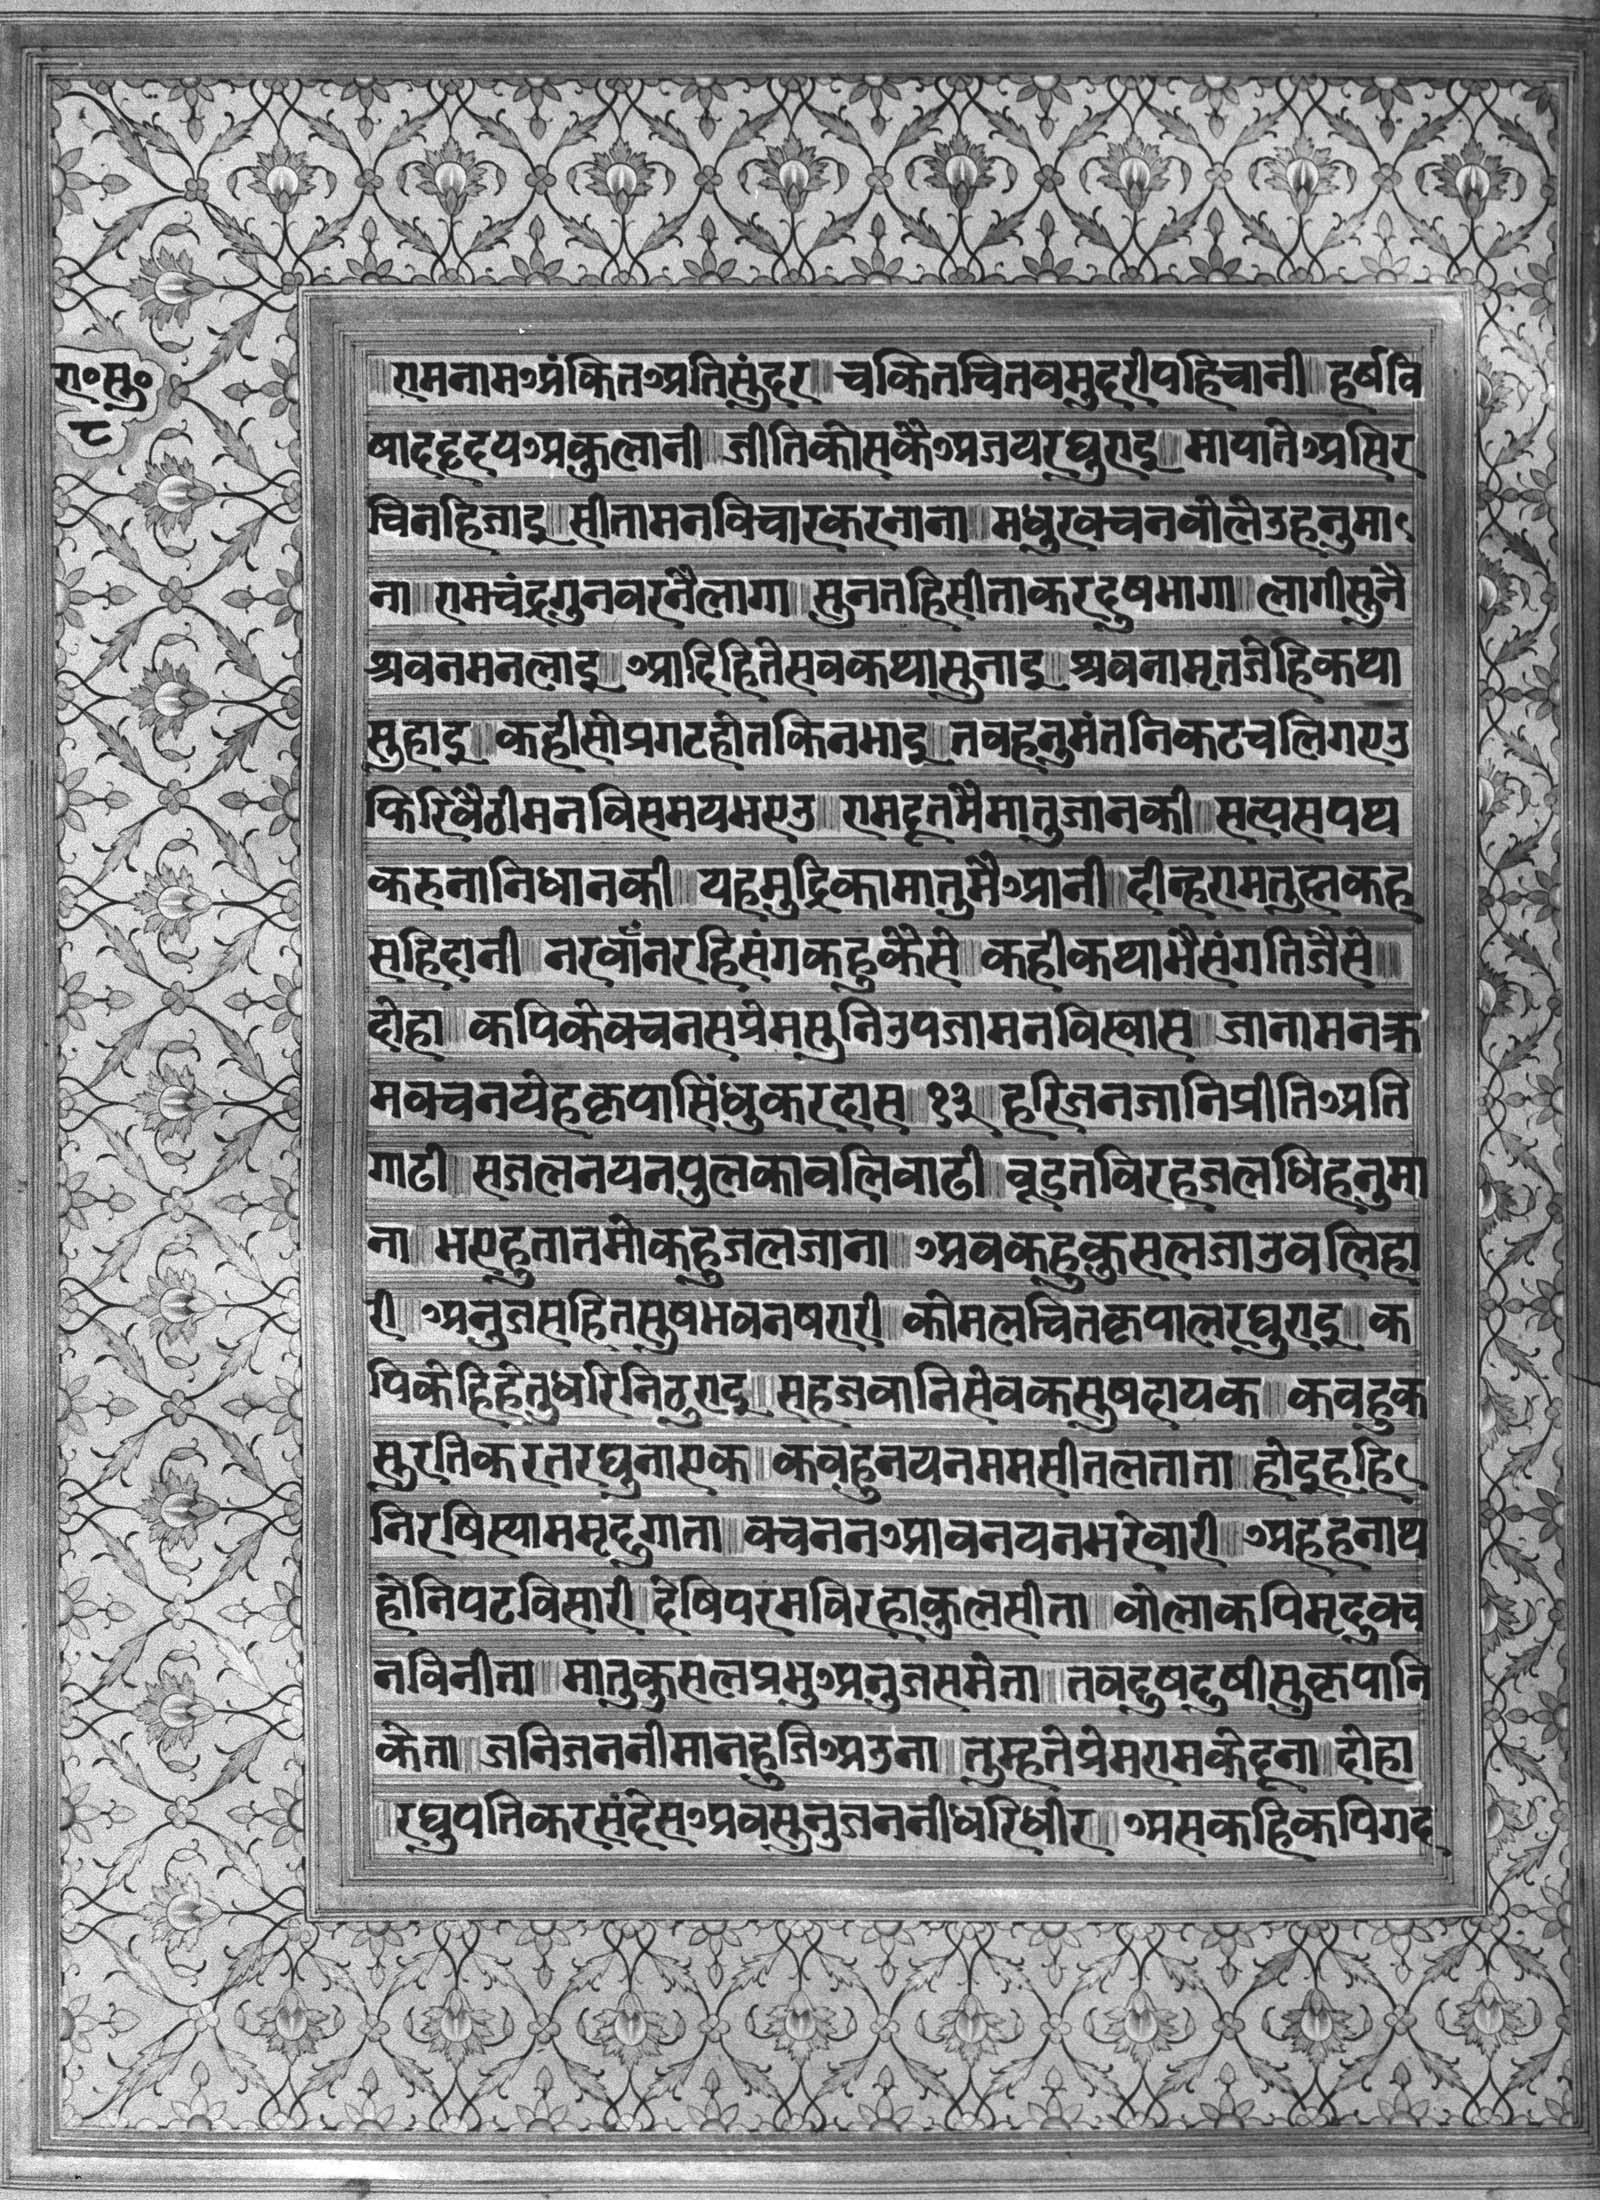 रा॰सु॰
८
रामनामअंकितअतिसुंदर ॥ चकितचितवमुदरीपहिचानी ॥ हर्षवि
षादहृदयअकुलानी ॥ जीतिकोसकैअजयरघुराई ॥ मायातेअसिर
चिनहिजाई ॥ सीतामनविचारकरनाना ॥ मधुरवचनवोलेउहनुमा
ना ॥ रामचंद्रगुनवरनैलागा ॥ सुनतहिसीताकरदुषभागा ॥ लागीसुनै
श्रवनमनलाई ॥ आदिहितेसवकथासुनाई ॥ श्रवनामृतजेहिकथा
सुहाई ॥ कहीसोप्रगटहोतकिनभाई ॥ तवहनुमंतनिकटचलिगएउ
फिरिवैठीमनविसमयभएउ ॥ रामदूतमैमातुजानकी ॥ सत्यसपथ
करुनानिधानकी ॥ यहमुद्रिकामातुमैआनी ॥ दीन्हरामतुह्मकह
सहिदानी ॥ नरवाँनरहिसंगकहुकैसे ॥ कहीकथाभैसंगतिजैसे ॥
दोहा ॥ कपिकेवचनसप्रेमसुनिउपजामनविस्वास ॥ जानामनक्र
मवचनयेहकृपासिंधुकरदास ॥ १३ ॥ हरिजनजानिप्रीतिअति
गाढी ॥ सजलनयनपुलकावलिवाढी ॥ वूडतविरहजलधिहनुमा
ना ॥ भएहुतातमोकहुजलजाना ॥ अवकहुकुसलजाउवलिहा
री ॥ अनुजसहितसुषभवनषरारी ॥ कोमलचितकृपालरघुराई ॥ क
पिकेहिहेतुधरिनिठुराई ॥ सहजवानिसेवकसुषदायक ॥ कवहुक
सुरतिकरतरघुनाएक ॥ कवहुनयनममसीतलताता ॥ होइहहि
निरषिस्याममृदुगाता ॥ वचननआवनयनभरेवारी ॥ अहहनाथ
होनिपटविसारी ॥ देषिपरमविरहाकुलसीता ॥ वोलाकपिमृदुवच
नविनीता ॥ मातुकुसलप्रभुअनुजसमेता ॥ तवदुषदुषीसुकृपानि
केता ॥ जनिजननीमानहुजिअउना ॥ तुम्हतेप्रेमरामकेदूना ॥ दोहा
॥ रघुपतिकरसंदेसअवसुनुजननीधरिधीर ॥ असकहिकपिगद